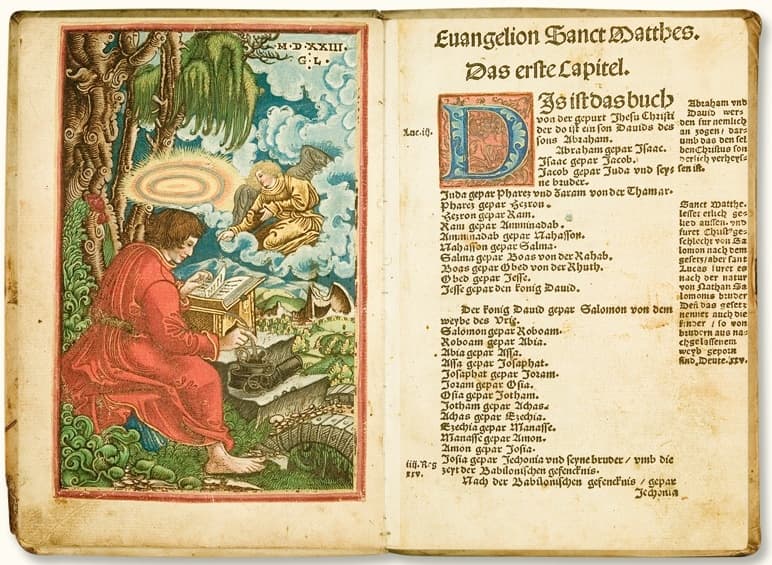 M·D·XXIII·
G·L·
Euangelion Sanct Matthes.
Das erste Capitel.
DIs ist das buch
von der gepurt Jhesu Christi
der do ist ein son Dauids des
sons Abraham.
Abraham gepar Isaac.
Isaac gepar Jacob.
Jacob gepar Juda vnd seyne
bruder.
Juda gepar Pharez vnd Saram von der Thamar.
Pharez gepar Hezron.
Hezron gepar Ram.
Ram gepar Amminadab.
Amminadab gepar Nahasson.
Nahasson gepar Salma.
Salma gepar Boas von der Rahab.
Boas gepar Obed von der Rhuth.
Obed gepar Jesse.
Jesse gepar den konig Dauid.
Der konig Dauid gepar Salomon von dem
weybe des Vrie.
Salomon gepar Roboam.
Roboam gepar Abia.
Abia gepar Assa.
Assa gepar Josaphat.
Josaphat gepar Joram.
Joram gepar Osia.
Osia gepar Jotham.
Jotham gepar Achas.
Achas gepar Ezechia.
Ezechia gepar Manasse.
Manasse gepar Amon.
Amon gepar Josia.
Josia gepar Jechonia vnd seyne bruder / vmb die
zeyt der Babilonischen gefencknis.
Nach der Babilonischen gefencknis / gepar
Jechonia
Luc.iij.
iiij.Reg
xxv.
Abraham vnd
Dauid werden
fur nemlich
an zogen / darumb
das den selben
Christus sonderlich
verheyssen
ist.
Sanct Matthe.
lesset etlich gelied
aussen / vnd
furet Christ' geschlecht
von Salomon
nach dem
gesetz / aber sant
Lucas furet es
nach der natur
von Nathan Salomonis
bruder
Den das gesetz
nennet auch die
kinder / so von
brudern aus nachgelassenem
weyb geporn
sind, Deute.xxv.